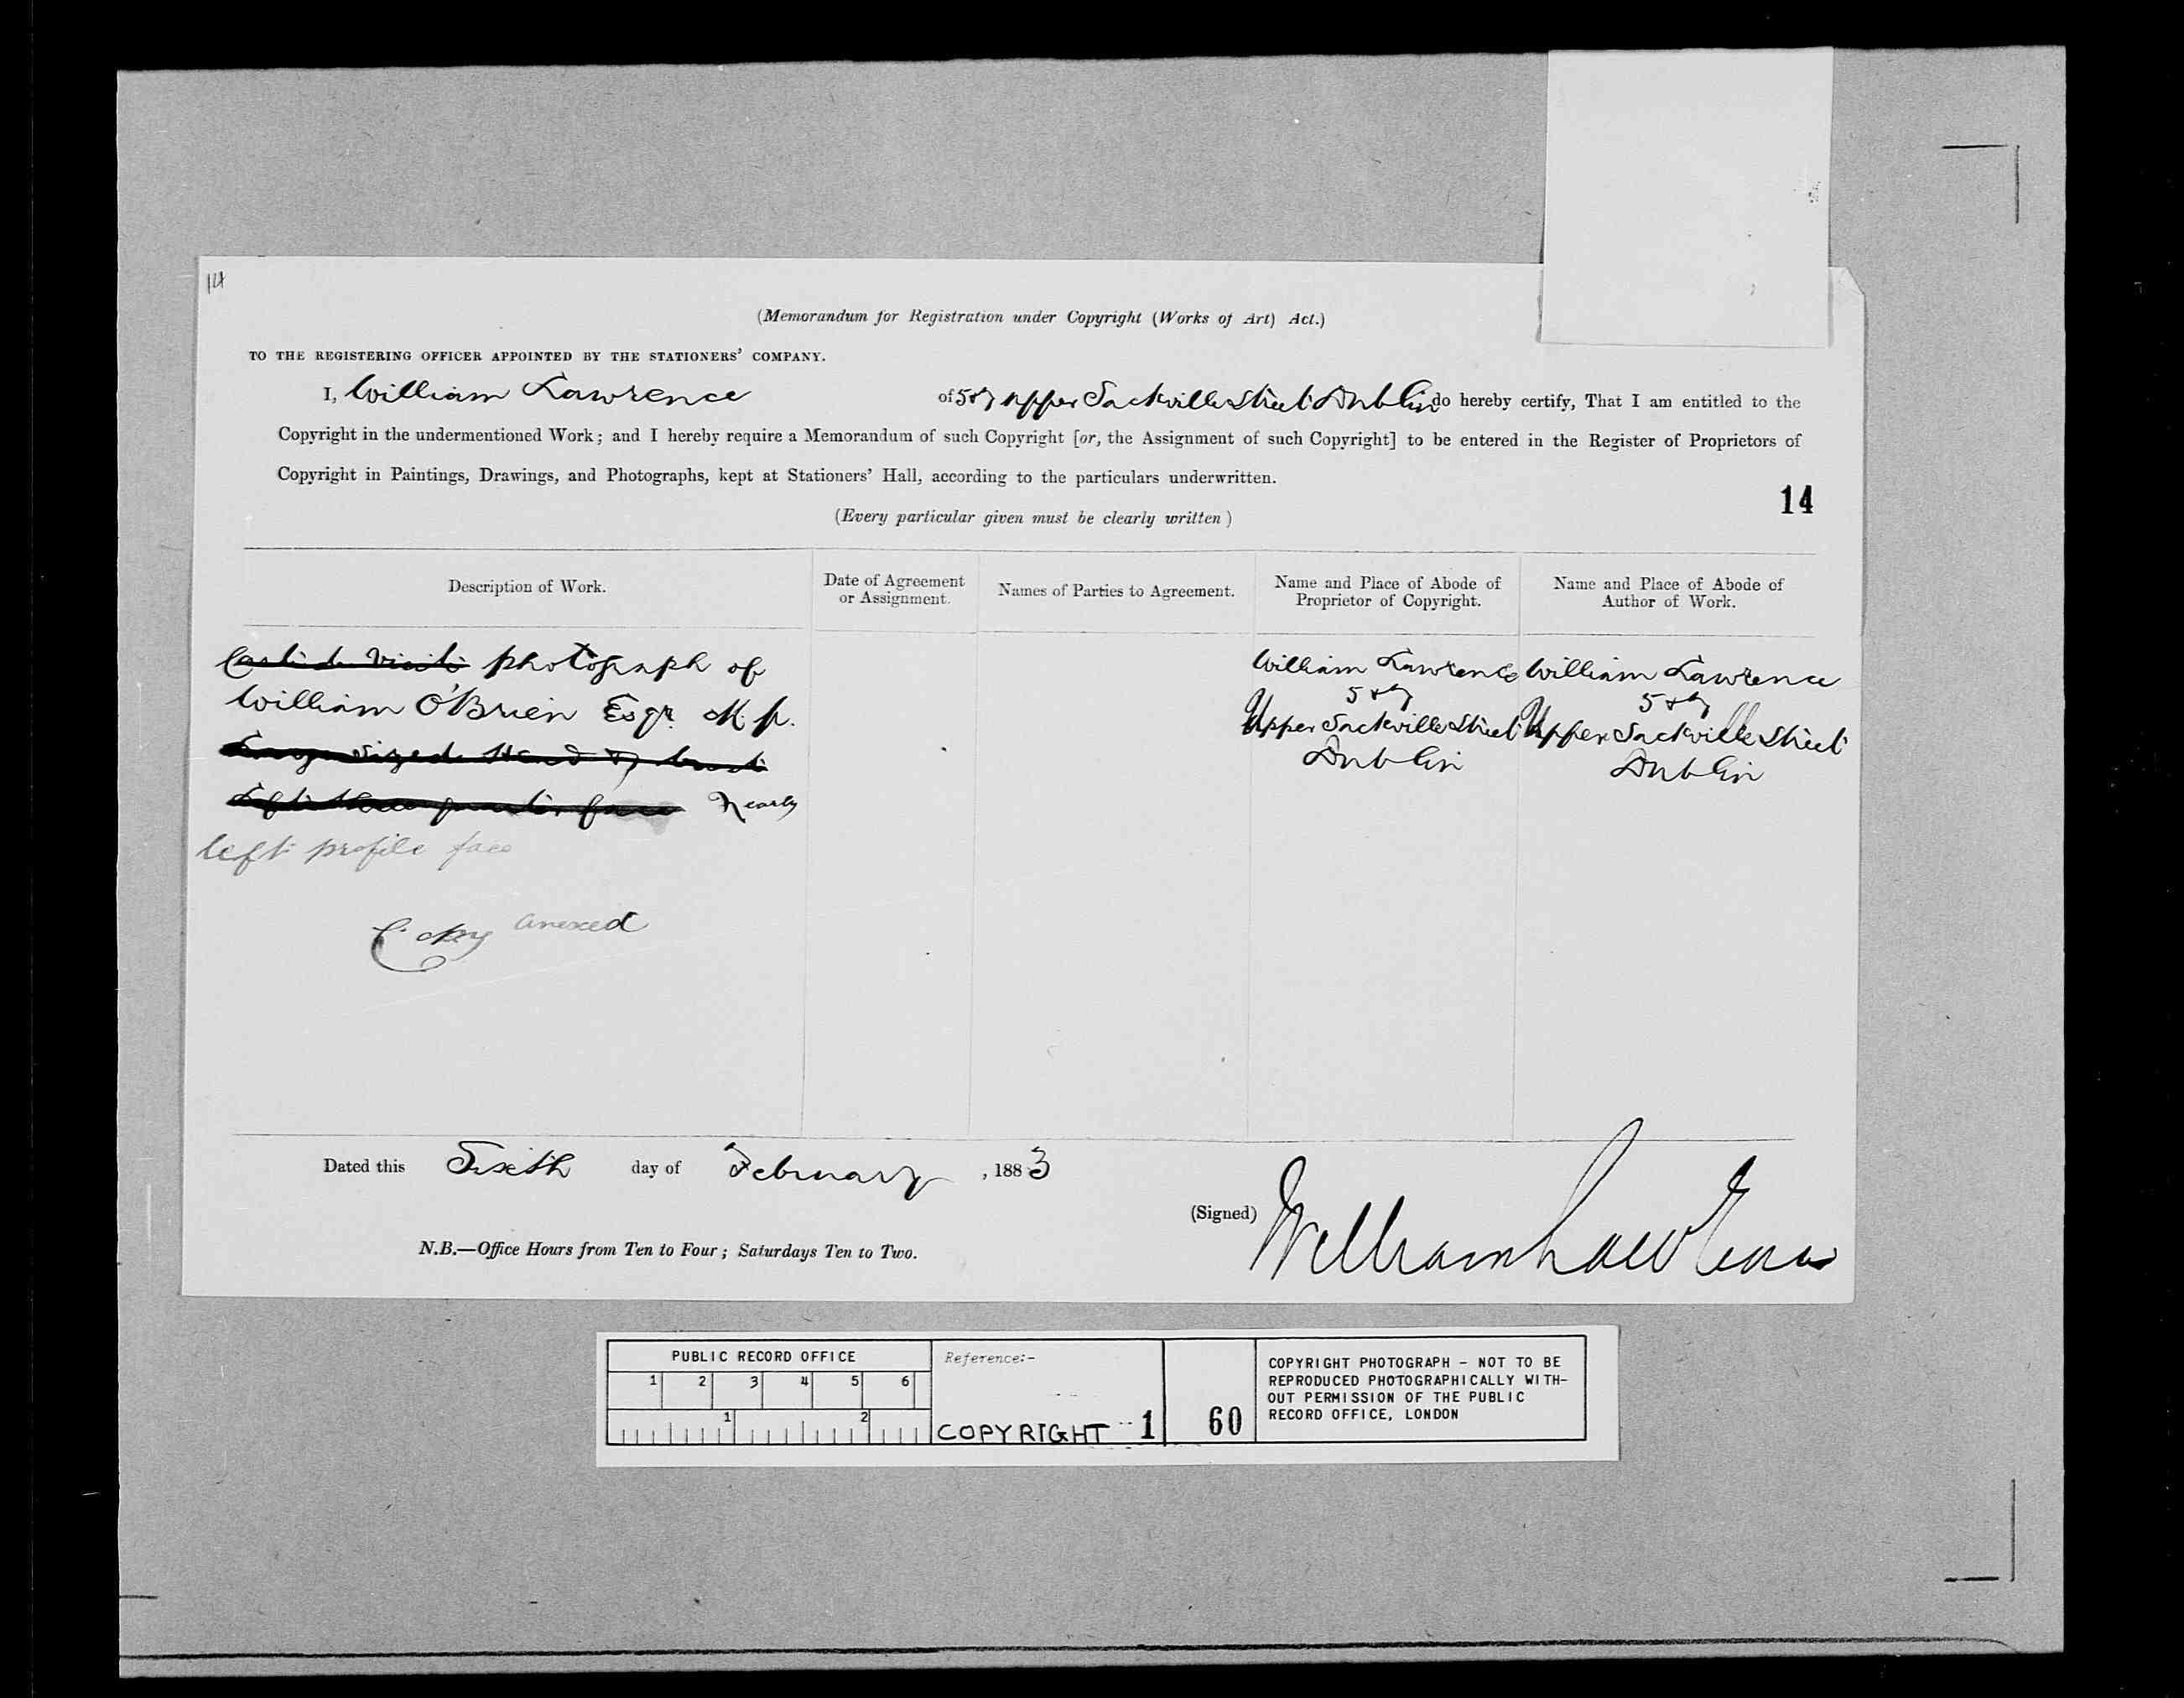 14
(Memorandum for Registration under Copyright (Works of Art) Act.)
TO THE REGISTERING OFFICER APPOINTED BY THE STATIONERS' COMPANY.
I, William Lawrence of 5 & 7 Upper Sackville Street Dublin do hereby certify, That I am entitled to the
Copyright in the undermentioned Work; and I hereby require a Memorandum of such Copyright [or, the Assignment of such Copyright] to be entered in the Register of Proprietors of
Copyright in Paintings, Drawings, and Photographs, kept at Stationers' Hall, according to the particulars underwritten.
14
(Every particular given must be clearly written)
Description of Work.
Date of Agreement
or Assignment.
Names of Parties to Agreement.
Name and Place of Abode of
Proprietor of Copyright.
Name and Place of Abode of
Author of Work.
Carte de Visite photograph of
William O'Brien Esqr. M.P.
Large sized Head & bust
Left three quarter face Nearly
left profile face
Copy anexed
William Lawrence
5 & 7
Upper Sackville Street
Dublin
William Lawrence
5 & 7
Upper Sackville Street
Dublin
Dated this Sixth day of February, 1883
(Signed) William Lawrence
N.B.—Office Hours from Ten to Four; Saturdays Ten to Two.
PUBLIC RECORD OFFICE
1 2 3 4 5 6
1 2
Reference:-
COPYRIGHT 1
60
COPYRIGHT PHOTOGRAPH - NOT TO BE
REPRODUCED PHOTOGRAPHICALLY WITH-
OUT PERMISSION OF THE PUBLIC
RECORD OFFICE, LONDON